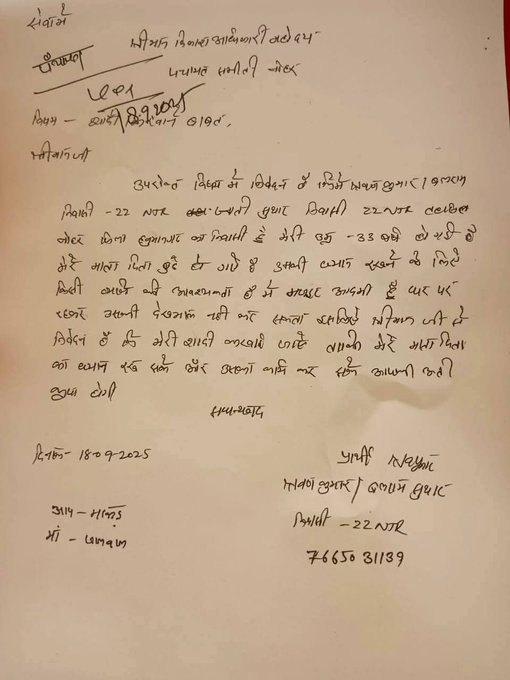 सेवामें
श्रीमान विकास अधिकारी महोदय
पंचायत समीती नोहर
विषय - शादी करवाने बाबत,
श्रीमानजी
उपरोक्त विषय में निवेदन है कि मैं श्रवण कुमार / बलराम
निवासी - 22 NTR जाती सुथार निवासी 22 NTR तहसिल
नोहर जिला हनुमानगढ का निवासी है मेरी उम्र - 33 वर्ष हो गयी है
मेरे माता पिता वृद हो गऐ है उनकी ध्यान रखने के लिऐ
किसी की आवश्यकता है मैं मजदुर आदमी हुँ घर पर
रहकर उनकी देखभाल नही कर सकता इसलिऐ श्रीमान जी से
निवेदन है कि मेरी शादी करवाई जाऐ ताकी मेरे माता पिता
का ध्यान रख सके और उनका कार्य कर सके आपकी अती
कृपा होगी
सधन्यवाद
दिनांक - 18-09-2025
प्रार्थी
श्रवण कुमार / बलराम सुथार
निवासी - 22 NTR
7665031139